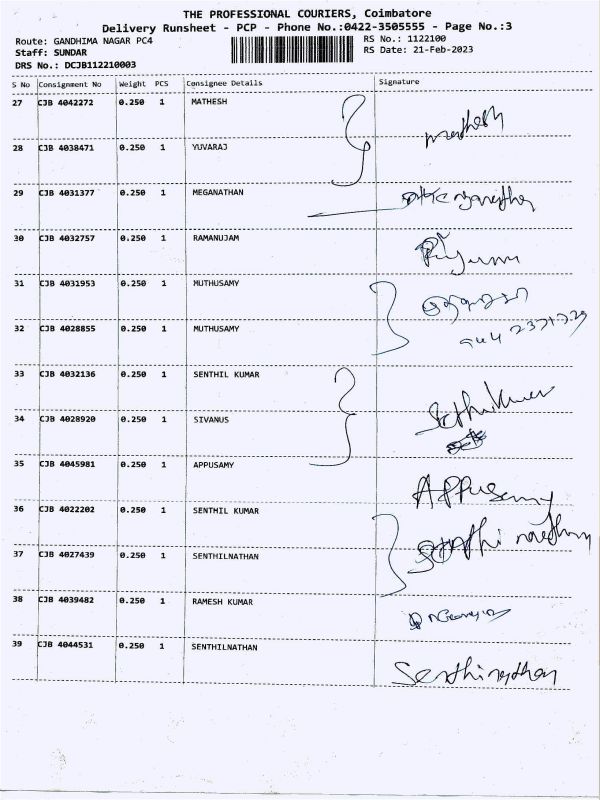 THE PROFESSIONAL COURIERS, Coimbatore
Delivery Runsheet - PCP - Phone No.:0422-3505555 - Page No.:3
Route: GANDHIMA NAGAR PC4
RS No.: 1122100
Staff: SUNDAR
RS Date: 21-Feb-2023
DRS No.: DCJB112210003
S No Consignment No Weight PCS Consignee Details Signature
27 CJB 4042272 0.250 1 MATHESH
mathesh
28 CJB 4038471 0.250 1 YUVARAJ
29 CJB 4031377 0.250 1 MEGANATHAN
30 CJB 4032757 0.250 1 RAMANUJAM
31 CJB 4031953 0.250 1 MUTHUSAMY
32 CJB 4028855 0.250 1 MUTHUSAMY
33 CJB 4032136 0.250 1 SENTHIL KUMAR
34 CJB 4028920 0.250 1 SIVANUS
35 CJB 4045981 0.250 1 APPUSAMY
Appusamy
36 CJB 4022202 0.250 1 SENTHIL KUMAR
37 CJB 4027439 0.250 1 SENTHILNATHAN
38 CJB 4039482 0.250 1 RAMESH KUMAR
39 CJB 4044531 0.250 1 SENTHILNATHAN
Senthilnathan